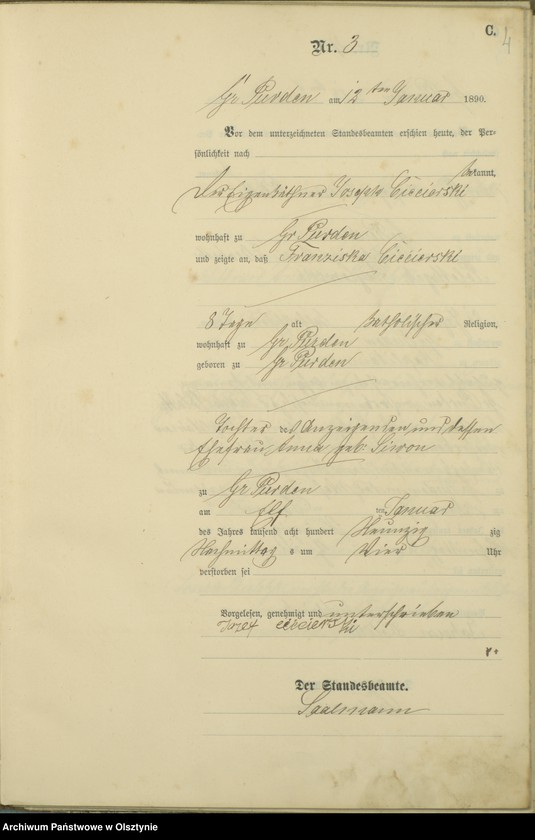 C.
4
Nr. 3
Gr Purden am 12ten Januar 1890.
Vor dem unterzeichneten Standesbeamten erschien heute, der Per-
sönlichkeit nach
bekannt,
Der Eigenkäthner Joseph Cieciorski
wohnhaft zu Gr Purden
und zeigte an, daß Franziska Cieciorski
8 Tage alt katholischer Religion,
wohnhaft zu Gr. Purden
geboren zu Gr Purden
Tochter des Anzeigenden und dessen
Ehefrau Anna geb.
zu Gr Purden
am Elf ten Januar
des Jahres tausend acht hundert Neunzig zig
Nachmittag s um Vier Uhr
verstorben sei
Vorgelesen, genehmigt und unterschrieben
Jozef ciecierski
Der Standesbeamte.
Saalmann
Archiwum Państwowe w Olsztynie